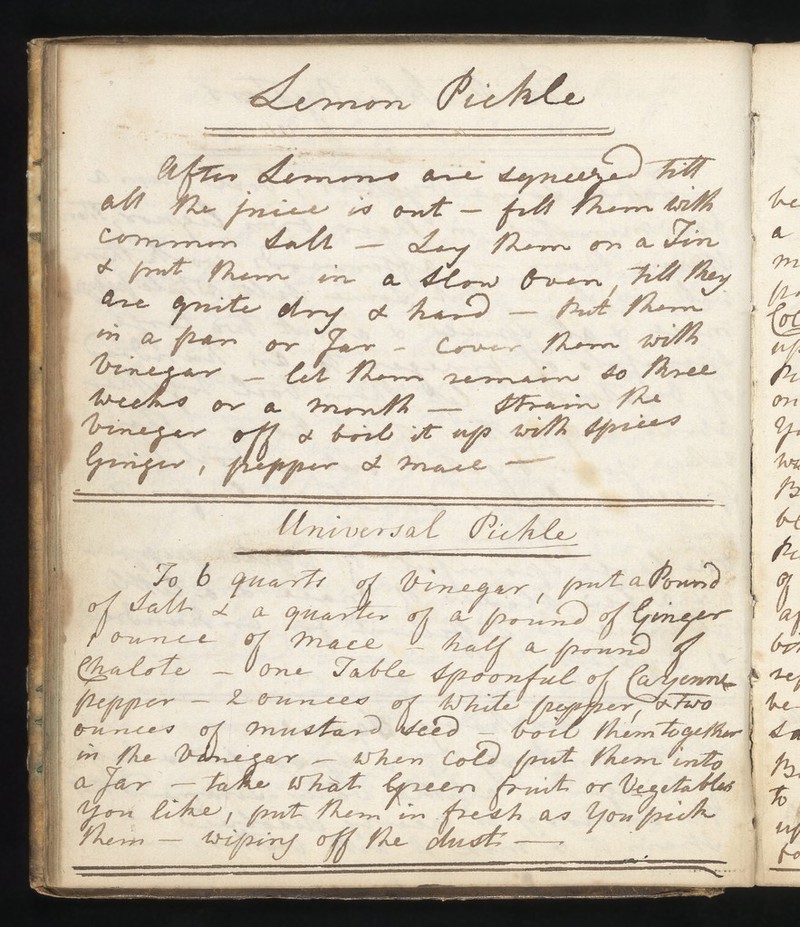 Lemon Pickle
After Lemons are squeezed till
all the juice is out – fill them with
common Salt – Lay them on a Tin
& put them in a Slow Oven, till they
are quite dry & hard – Put them
in a pan or Jar – Cover them with
Vinegar – let them remain so three
weeks or a month – Strain the
Vinegar off & boil it up with Spices
Ginger, pepper & mace –
Universal Pickle
To 6 quarts of Vinegar, put a Pound
of Salt & a quarter of a pound of Ginger
1 ounce of mace – half a pound of
Chalote – One Table Spoonful of Cayenne
pepper – 2 ounces of White pepper, & two
ounces of mustard seed – boil them together
in the Vinegar – when Cold put them into
a Jar – take what Green fruit or Vegetables
you like, put them in fresh as you pick
them – wiping off the dust –
be
a
up
on
be
of
be
to
up